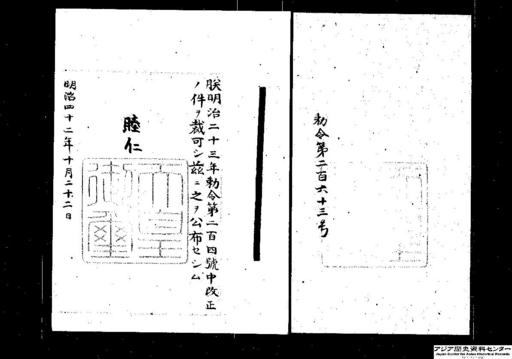 勅令第二百六十三号
朕明治二十三年勅令第二百四號中改正
ノ件ヲ裁可シ茲ニ之ヲ公布セシム
睦仁
天皇
御璽
明治四十二年十月二十二日
アジア歴史資料センター
Japan Center for Asian Historical Records